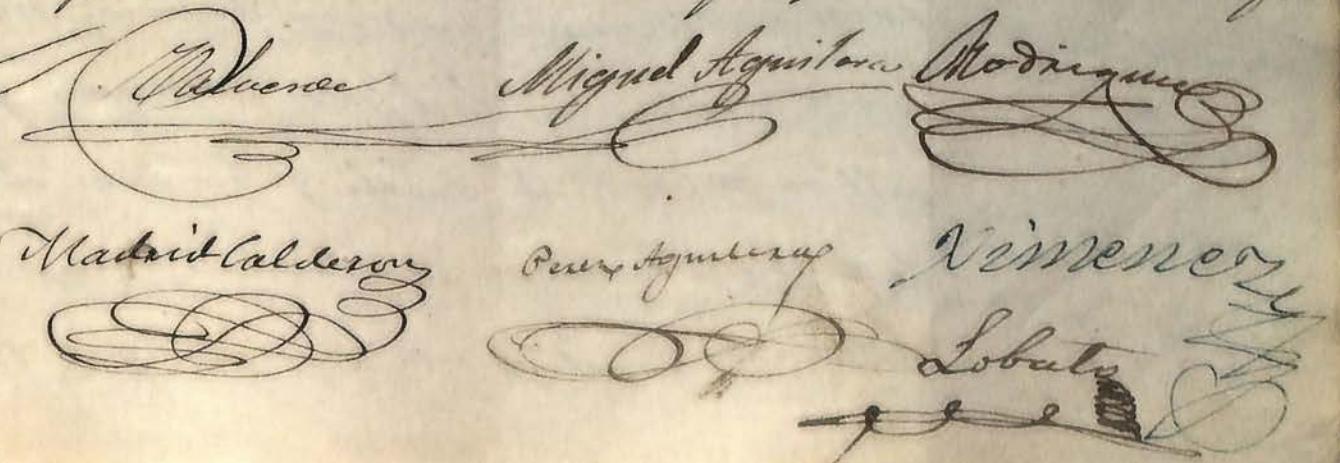 Valverde Miguel Aguilera Rodriguez
Madrid Calderon Perez Aguilera Ximenez
Lobato